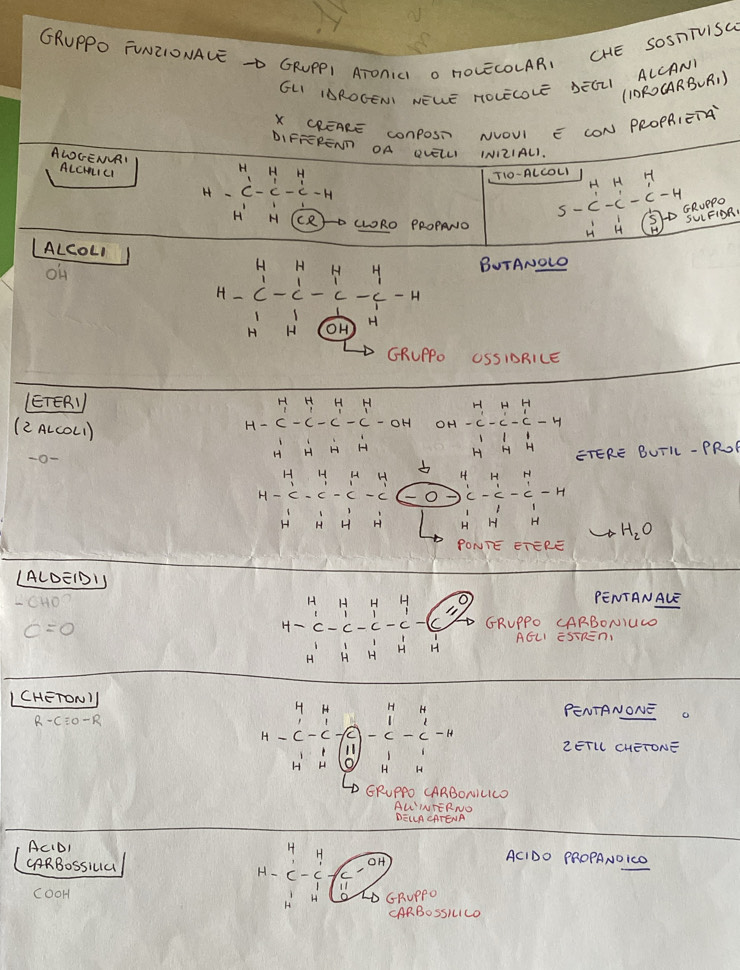 GRUPPO FUNZIONALE → GRUPPI ATOMICI O MOLECOLARI CHE SOSTITUISCO
GLI IDROGENI NELLE MOLECOLE DEGLI ALCANI
(IDROCARBURI)
X CREARE COMPOSTI NUOVI E CON PROPRIETÀ
DIFFERENTI DA QUELLI INIZIALI.
ALOGENURI
ALCHILICI
H H H
H - C - C - C - H
H H CR → CLORO PROPANO
TIO-ALCOLI
H H H
S - C - C - C - H
H H S H → GRUPPO
SULFIDRI
ALCOLI
OH
BUTANOLO
H H H H
H - C - C - C - C - H
H H OH H
→ GRUPPO OSSIDRILE
ETERI
(2 ALCOLI)
-O-
H H H H H H H
H - C - C - C - C - OH OH - C - C - C - H
H H H H H H H
ETERE BUTIL - PROP
H H H H H H H
H - C - C - C - C - O - C - C - C - H
H H H H H H H
→ PONTE ETERE → H2O
ALDEIDI
-CHO
C=O
PENTANALE
H H H H O
H - C - C - C - C - C → GRUPPO CARBONILICO
AGLI ESTREMI
H H H H H
CHETONI
R-C=O-R
PENTANONE
2ETIL CHETONE
H H H H
H - C - C - C - C - C - H
H H O H H
→ GRUPPO CARBONILICO
ALL'INTERNO
DELLA CATENA
ACIDI
CARBOSSILICI
COOH
ACIDO PROPANOICO
H H OH
H - C - C - C
H H O → GRUPPO
CARBOSSILICO